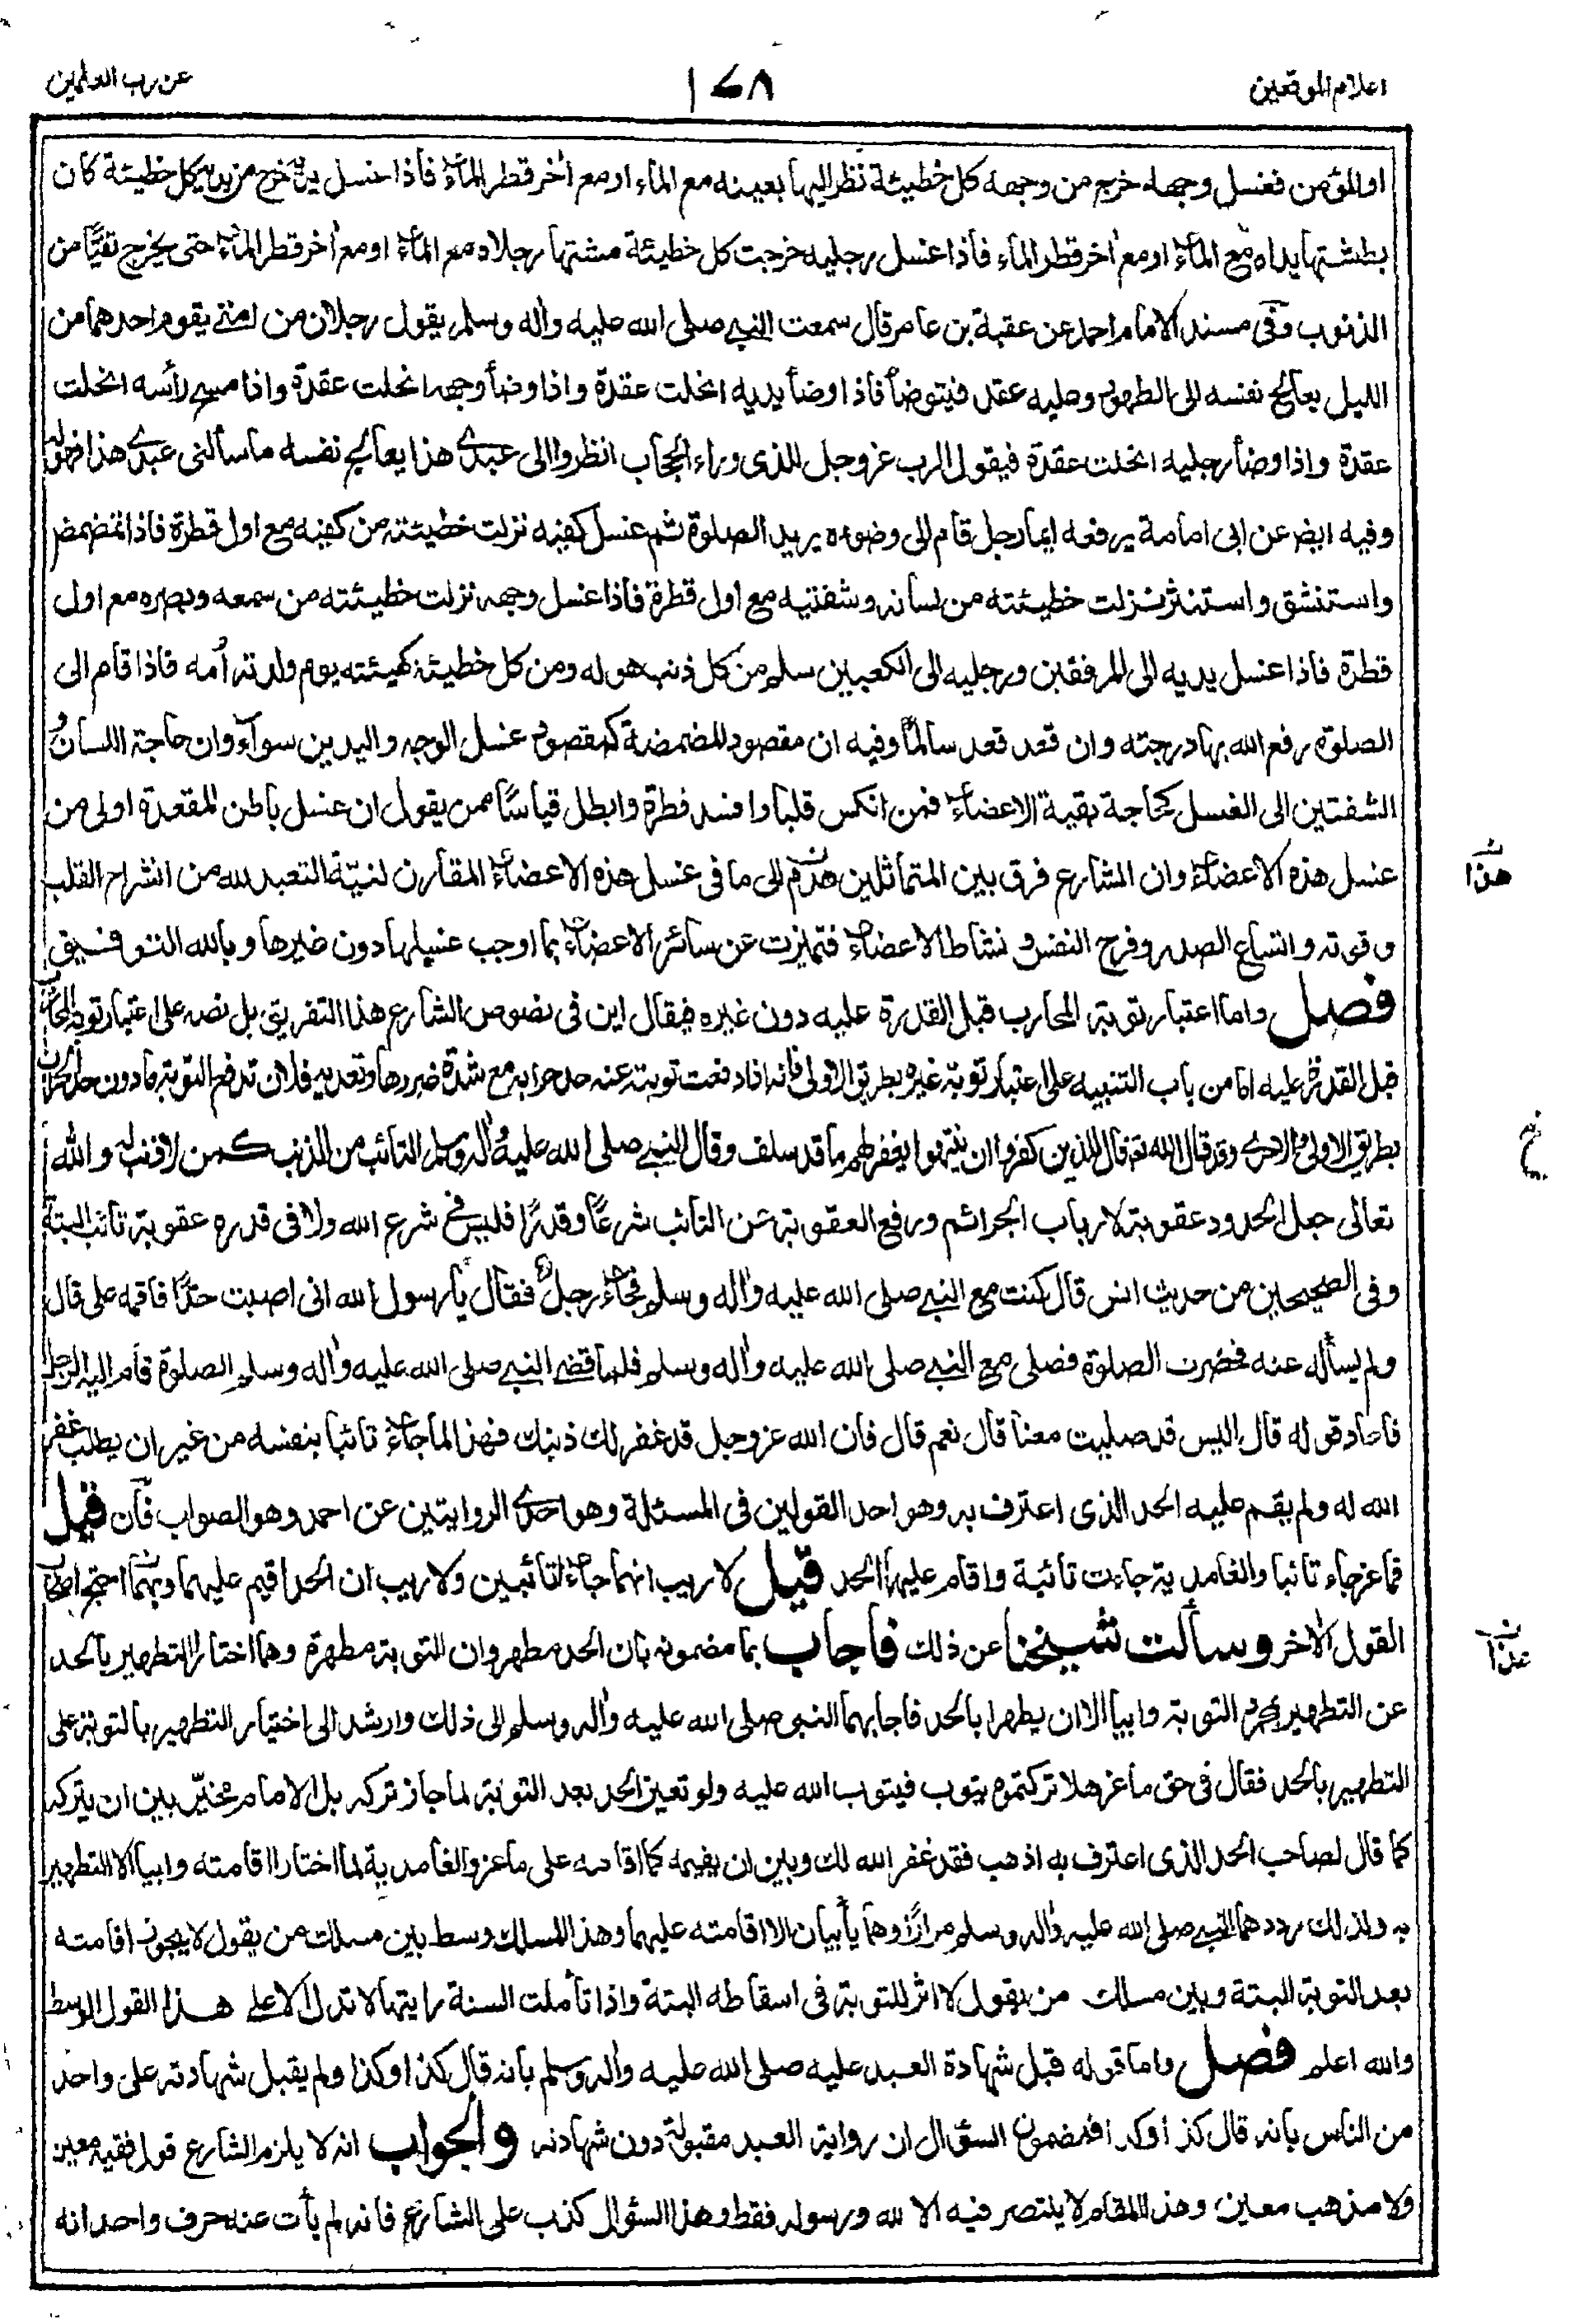 اعلام الموقعين
١٧٨
عن رب العلمين
او المؤمن فغسل وجهه خرج من وجهه كل خطيئة نظر اليها بعينه مع الماء او مع اٰخر قطر الماء فاذا غسل يديه خرج من يديه كل خطيئة كان
بطشتها يداه مع الماء او مع اٰخر قطر الماء فاذا غسل رجليه خرجت كل خطيئة مشتها رجلاه مع الماء او مع اٰخر قطر الماء حتى يخرج نقيًّا من
الذنوب وفى مسند الامام احمد عن عقبة بن عامر قال سمعت النبي صلى الله عليه واٰله وسلم يقول رجلان من امتي يقوم احدهما من
الليل يعالج نفسه الى الطهور وعليه عقد فيتوضأ فاذا وضأ يديه انحلت عقدة واذا وضأ وجهه انحلت عقدة واذا مسح رأسه انحلت
عقدة واذا وضأ رجليه انحلت عقدة فيقول الرب عز وجل للذى وراء الحجاب انظروا الى عبدي هذا يعالج نفسه ما سألنى عبدي هذا فهو له
وفيه ايضا عن ابى امامة يرفعه ايما رجل قام الى وضوءه يريد الصلوة ثم غسل كفيه نزلت خطيئته من كفيه مع اول قطرة فاذا تمضمض
واستنشق واستنثر نزلت خطيئته من لسانه وشفتيه مع اول قطرة فاذا غسل وجهه نزلت خطيئته من سمعه وبصره مع اول
قطرة فاذا غسل يديه الى المرفقين ورجليه الى الكعبين سلم من كل ذنب هو له ومن كل خطيئة كهيئته يوم ولدته أمه فاذا قام الى
الصلوة رفع الله بها درجته وان قعد قعد سالمًا وفيه ان مقصود المضمضة كمقصود غسل الوجه واليدين سواء وان حاجة اللسان و
الشفتين الى الغسل كحاجة بقية الاعضاء فمن انكس قلبا وافسد فطرة وابطل قياسًا ممن يقول ان غسل باطن المقعدة اولى من
غسل هذه الاعضاء وان الشارع فرق بين المتماثلين هذا الى ما فى غسل هذه الاعضاء المقارن لنيّة التعبد لله من انشراح القلب
وقوته واتساع الصدر وفرح النفس ونشاط الاعضاء فتميزت عن سائر الاعضاء بما اوجب غسلها دون غيرها وبالله التوفيق
فصل واما اعتبار توبة المحارب قبل القدرة عليه دون غيره فيقال اين فى نصوص الشارع هذا التفريق بل نصه على اعتبار توبة المحارب
قبل القدرة عليه اما من باب التنبيه على اعتبار توبة غيره بطريق الاولى فانه اذا دفعت توبته عنه حد حرابه مع شدة ضررها وتعديه فلان تدفع التوبة ما دون حد الحراب
بطريق الاولى والاحرى وقد قال الله تعالى قل للذين كفروا ان ينتهوا يغفر لهم ما قد سلف وقال النبي صلى الله عليه واٰله وسلم التائب من الذنب كمن لا ذنب له والله
تعالى جعل الحدود عقوبة لارباب الجرائم ورفع العقوبة عن التائب شرعًا وقدرًا فليس فى شرع الله ولا فى قدره عقوبة تائب البتة
وفى الصحيحين من حديث انس قال كنت مع النبي صلى الله عليه واٰله وسلم فجاء رجل فقال يا رسول الله انى اصبت حدًّا فاقمه على قال
ولم يسأله عنه فحضرت الصلوة فصلى مع النبي صلى الله عليه واٰله وسلم فلما قضى النبي صلى الله عليه واٰله وسلم الصلوة قام اليه الرجل
فاعاد قوله قال اليس قد صليت معنا قال نعم قال فان الله عز وجل قد غفر لك ذنبك فهذا لما جاء تائبا بنفسه من غير ان يطلب غفر
الله له ولم يقم عليه الحد الذى اعترف به وهو احد القولين فى المسئلة وهو احدى الروايتين عن احمد وهو الصواب فان قيل
فماعز جاء تائبا والغامدية جاءت تائبة واقام عليهما الحد قيل لا ريب انهما جاءا تائبين ولا ريب ان الحد اقيم عليهما وبهما احتج اصحاب
القول الاخر وسألت شيخنا عن ذلك فاجاب بما مضمونه بان الحد مطهر وان التوبة مطهرة وهما اختارا التطهير بالحد
عن التطهير بمجرد التوبة وابيا الا ان يطهرا بالحد فاجابهما النبي صلى الله عليه واٰله وسلم الى ذلك وارشد الى اختيار التطهير بالتوبة على
التطهير بالحد فقال فى حق ماعز هلا تركتموه يتوب فيتوب الله عليه ولو تعين الحد بعد التوبة لما جاز تركه بل الامام مخيّر بين ان يتركه
كما قال لصاحب الحد الذى اعترف به اذهب فقد غفر الله لك وبين ان يقيمه كما اقامه على ماعز والغامدية لما اختارا اقامته وابيا الا التطهير
به ولذلك رددهما النبي صلى الله عليه واٰله وسلم مرارًا وهما يأبيان الا اقامته عليهما وهذا المسلك وسط بين مسلك من يقول لا يجوز اقامته
بعد التوبة البتة وبين مسلك من يقول لا اثر للتوبة فى اسقاطه البتة واذا تأملت السنة رايتها لا تدل الا على هذا القول الوسط
والله اعلم فصل واما قوله قبل شهادة العبد عليه صلى الله عليه واٰله وسلم بانه قال كذا وكذا ولم يقبل شهادته على واحد
من الناس بانه قال كذا وكذا فمضمون السؤال ان رواية العبد مقبولة دون شهادته والجواب انه لا يلزم الشارع قول فقيه معين
ولا مذهب معين وهذا المقام لا ينتصر فيه الا لله ورسوله فقط وهذا السؤال كذب على الشارع فانه لم يأت عنه حرف واحد انه
هذا